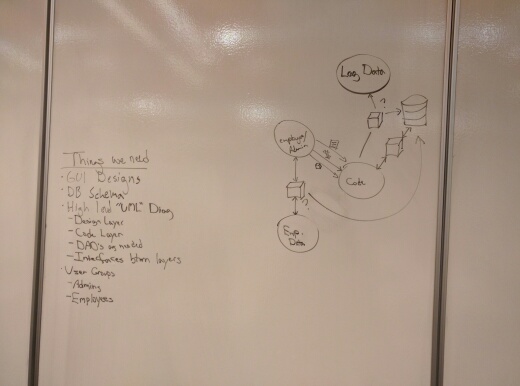 Things we need
- GUI Designs
- DB Schema
- High lvel "UML" Diag
- Design Layer
- Code Layer
- DAO's as needed
- Interfaces btwn layers
- User Groups
- Admins
- Employees
Log Data
?
employee/
Admin
Code
?
Emp.
Data